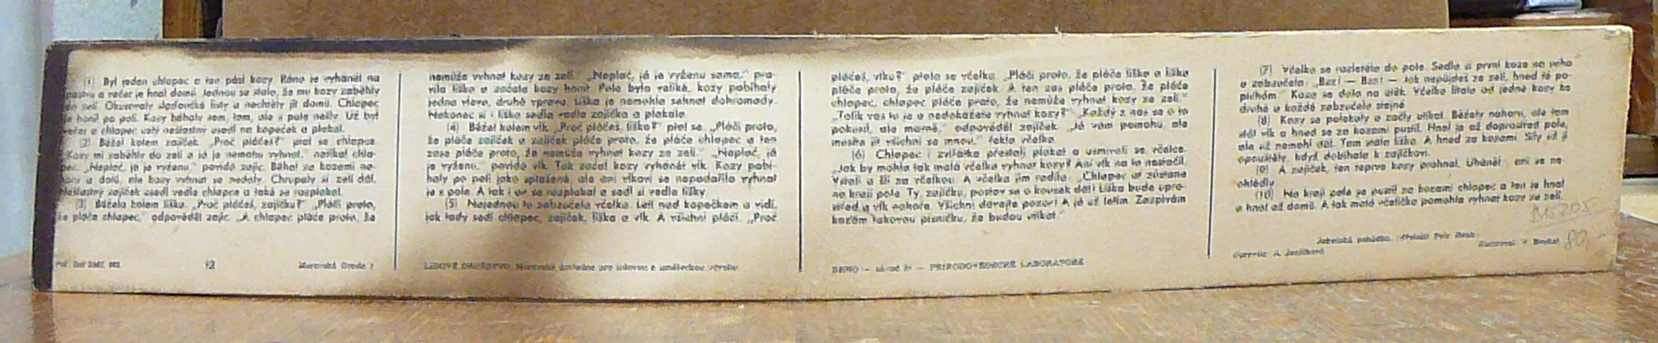 (1) Byl jeden chlapec a ten pásl kozy. Ráno je vyháněl na
pastvu a večer je hnal domů. Jednou se stalo, že mu kozy zaběhly
do zelí. Okusovaly šťavnaté listy a nechtěly jít domů. Chlapec
je honil po poli. Kozy běhaly sem, tam, ale z pole nešly. Už byl
večer a chlapec celý nešťastný usedl na kopeček a plakal.
(2) Běžel kolem zajíček. „Proč pláčeš?" ptal se chlapce.
„Kozy mi zaběhly do zelí a já je nemohu vyhnat," naříkal chla-
pec. „Neplač, já je vyženu," povídá zajíc. Běhal za kozami na-
horu a dolů, ale kozy vyhnat se nedaly. Chrupaly si zelí dál.
Nešťastný zajíček usedl vedle chlapce a také se rozplakal.
(3) Běžela kolem liška. „Proč pláčeš, zajíčku?" „Pláči proto,
že pláče chlapec," odpověděl zajíc. „A chlapec pláče proto, že
12
nemůže vyhnat kozy ze zelí." „Neplač, já je vyženu sama," pra-
vila liška a začala kozy honit. Pole bylo veliké, kozy pobíhaly
jedna vlevo, druhá vpravo. Liška je nemohla sehnat dohromady.
Nakonec si i liška sedla vedle zajíčka a plakala.
(4) Běžel kolem vlk. „Proč pláčeš, liško?" ptal se. „Pláči proto,
že pláče zajíček a zajíček pláče proto, že pláče chlapec a ten
zase pláče proto, že nemůže vyhnat kozy ze zelí." „Neplač, já
je vyženu," povídá vlk. Tak začal kozy vyhánět vlk. Kozy pobí-
haly po poli jako splašené, ale ani vlkovi se nepodařilo vyhnat
je z pole. A tak i on se rozplakal a sedl si vedle lišky.
(5) Najednou to zabzučela včelka. Letí nad kopečkem a vidí,
jak tady sedí chlapec, zajíček, liška a vlk. A všichni pláčí. „Proč
LIDOVÉ DRUŽSTVO,
pláčeš, vlku?" ptala se včelka. „Pláči proto, že pláče liška a liška
pláče proto, že pláče zajíček. A ten zas pláče proto, že pláče
chlapec, chlapec pláče proto, že nemůže vyhnat kozy ze zelí."
„Tolik vás tu je a nedokážete vyhnat kozy?" „Každý z nás se o to
pokusil, ale marně," odpověděl zajíček. „Já vám pomohu, ale
musíte jít všichni se mnou," řekla včelka.
(6) Chlapec i zvířátka přestali plakat a usmívali se včelce.
„Jak by mohla tak malá včelka vyhnat kozy? Ani vlk na to nestačil."
Vstali a šli za včelkou. A včelka jim radila: „Chlapec ať zůstane
na kraji pole. Ty, zajíčku, postav se o kousek dál! Liška bude upro-
střed a vlk nahoře. Všichni dávejte pozor! A já už letím. Zazpívám
kozám takovou písničku, že budou utíkat."
PŘÍRODOVĚDECKÉ LABORATOŘE
(7) Včelka se rozletěla do pole. Sedla si první koze na ucho
a zabzučela: „Bzz! — Bzz! — Jak nepůjdeš ze zelí, hned tě po-
píchám." Koza se dala na útěk. Včelka lítala od jedné kozy ke
druhé a každé zabzučela stejně.
(8) Kozy se polekaly a začly utíkat. Běžely nahoru, ale tam
stál vlk a hned se za kozami pustil. Hnal je až doprostřed pole,
ale už nemohl dál. Tam stála liška. A hned za kozami. Síly už ji
opouštěly, když dobíhala k zajíčkovi.
(9) A zajíček, ten teprve kozy prohnal. Uháněl, ani se ne-
ohlédl.
(10) Na kraji pole je pustil za kozami chlapec a ten je hnal
a hnal až domů. A tak malá včelička pomohla vyhnat kozy ze zelí.
80,-